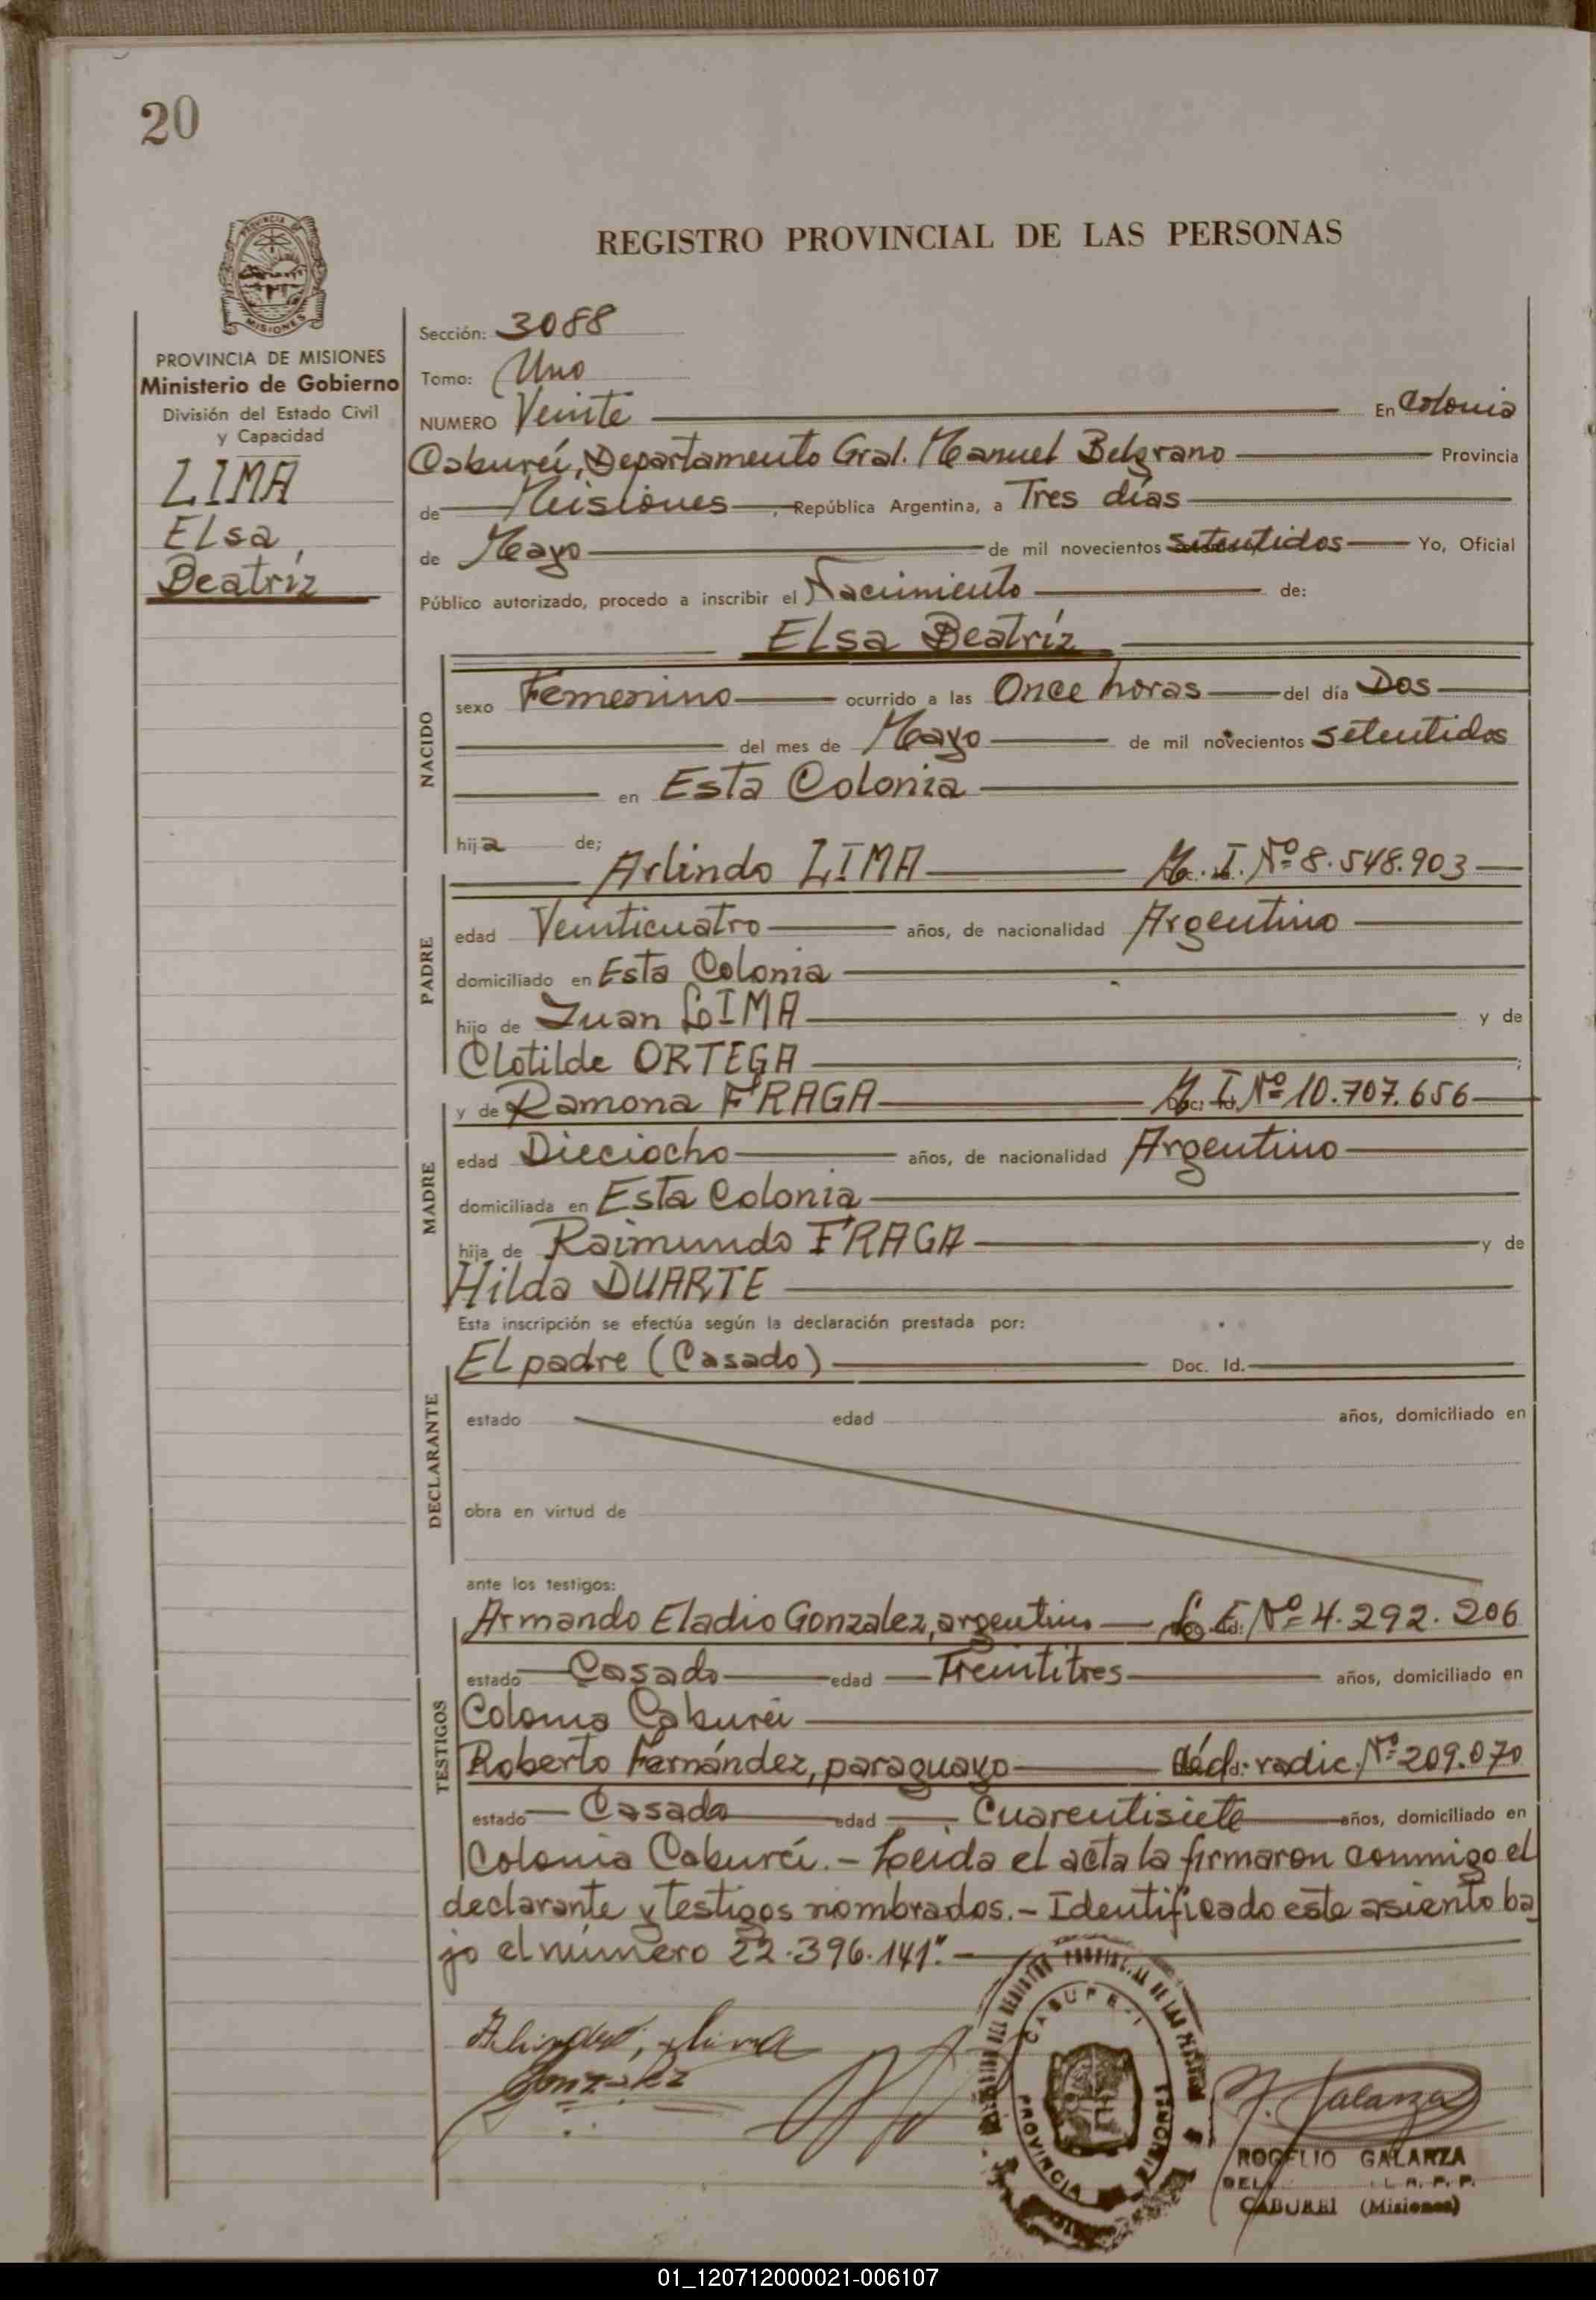 20
PROVINCIA DE MISIONES
Ministerio de Gobierno
División del Estado Civil
y Capacidad
LIMA
Elsa
Beatríz
REGISTRO PROVINCIAL DE LAS PERSONAS
Sección: 3088
Tomo: Uno
NUMERO Veinte En Colonia
Caburei, Departamento Gral. Manuel Belgrano Provincia
de Misiones, República Argentina, a Tres días
de Mayo de mil novecientos setentidos Yo, Oficial
Público autorizado, procedo a inscribir el Nacimiento de:
Elsa Beatríz
NACIDO
sexo Femenino ocurrido a las Once horas del día Dos
del mes de Mayo de mil novecientos setentidos
en Esta Colonia
hija de;
Arlindo LIMA M. I. Nº 8.548.903
PADRE
edad Veinticuatro años, de nacionalidad Argentino
domiciliado en Esta Colonia
hijo de Juan LIMA y de
Clotilde ORTEGA ;
y de Ramona FRAGA M. I. Nº 10.707.656
MADRE
edad Dieciocho años, de nacionalidad Argentino
domiciliada en Esta Colonia
hija de Raimundo FRAGA y de
Hilda DUARTE
Esta inscripción se efectúa según la declaración prestada por:
El padre (Casado) Doc. Id.
DECLARANTE
estado edad años, domiciliado en
obra en virtud de
ante los testigos:
TESTIGOS
Armando Eladio Gonzalez, argentino L. E. Nº 4.292.206
estado Casado edad Treintitres años, domiciliado en
Colonia Caburei
Roberto Fernández, paraguayo Céd. radic. Nº 209.070
estado Casado edad Cuarentisiete años, domiciliado en
Colonia Caburei.- Leida el acta la firmaron conmigo el
declarante y testigos nombrados.- Identificado este asiento ba
jo el número 22.396.141".-
Arlindo Lima
Gonzalez
CABUREI
PROVINCIA MISIONES
R. Galarza
ROGELIO GALARZA
CABUREI (Misiones)
01_120712000021-006107